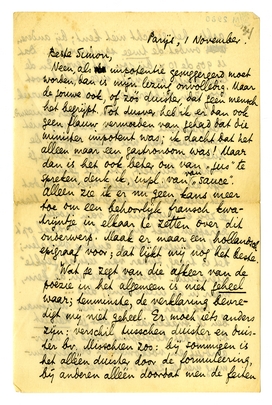 Parijs, 1 November.
Beste Simon,
Neen, als impotentie gesuggereerd moet
worden, dan is mijn lezing onvolledig. Maar
de jouwe ook, of zóó duister, dat geen mensch
het begrijpt. Tot dusver heb ik er dan ook
geen flauw vermoeden van gehad dat die
minister impotent was; ik dacht dat het
alleen maar een gastronoom was! Maar
dan is het ook beter om van "jus" te
spreken, denk ik, i.pl. van "sauce".
Alleen zie ik er nu geen kans meer
toe om een behoorlijk fransch kwa-
trijntje in elkaar te zetten over dit
onderwerp. Maak er maar een hollandsch
epigraaf voor; dat lijkt mij nog het beste.
Wat je zegt van die afkeer van de
poëzie in het algemeen is niet geheel
waar; tenminste, de verklaring bevre-
digt mij niet geheel. Er moet iets anders
zijn: verschil tusschen duister en duis-
ter bv. Misschien zoo: bij sommigen is
het alléén duister door de formuleering,
bij anderen alleen doordat men de feiten